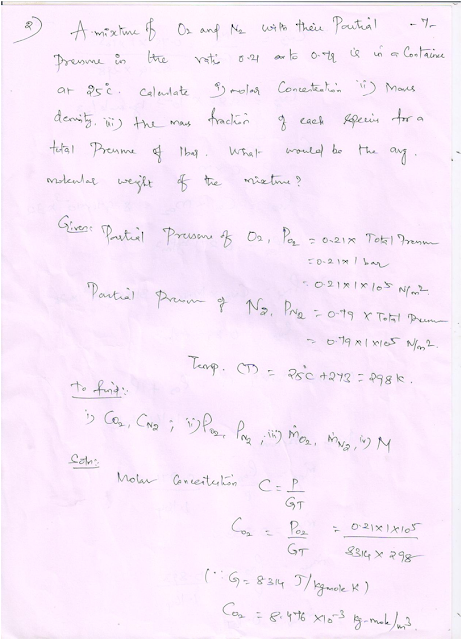 2) A mixture of O2 and N2 with their Partial -7-
Pressure in the ratio 0.21 and 0.79 is in a Container
at 25°C. Calculate i) molar Concentration ii) Mass
density, iii) the mass fraction of each specie for a
total Pressure of 1bar. What would be the avg.
molecular weight of the mixture?
Given: Partial Pressure of O2, PO2 = 0.21 x Total Pressure
= 0.21 x 1 bar
= 0.21 x 1 x 10⁵ N/m².
Partial Pressure of N2, PN2 = 0.79 x Total Pressure
= 0.79 x 1 x 10⁵ N/m².
Temp. (T) = 25°C + 273 = 298 K.
To find:
i) CO2, CN2 ; ii) ρO2, ρN2, iii) ṁO2, ṁN2, iv) M
Soln:
Molar Concentration C = P
GT
CO2 = PO2 = 0.21x1x10⁵
GT 8314 x 298
(∵ G = 8314 J/kgmole K)
CO2 = 8.476 x 10⁻³ kg-mole/m³.